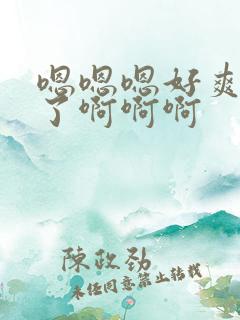 嗯嗯嗯好爽
了啊啊啊
陳政勁
未经同意禁止转载